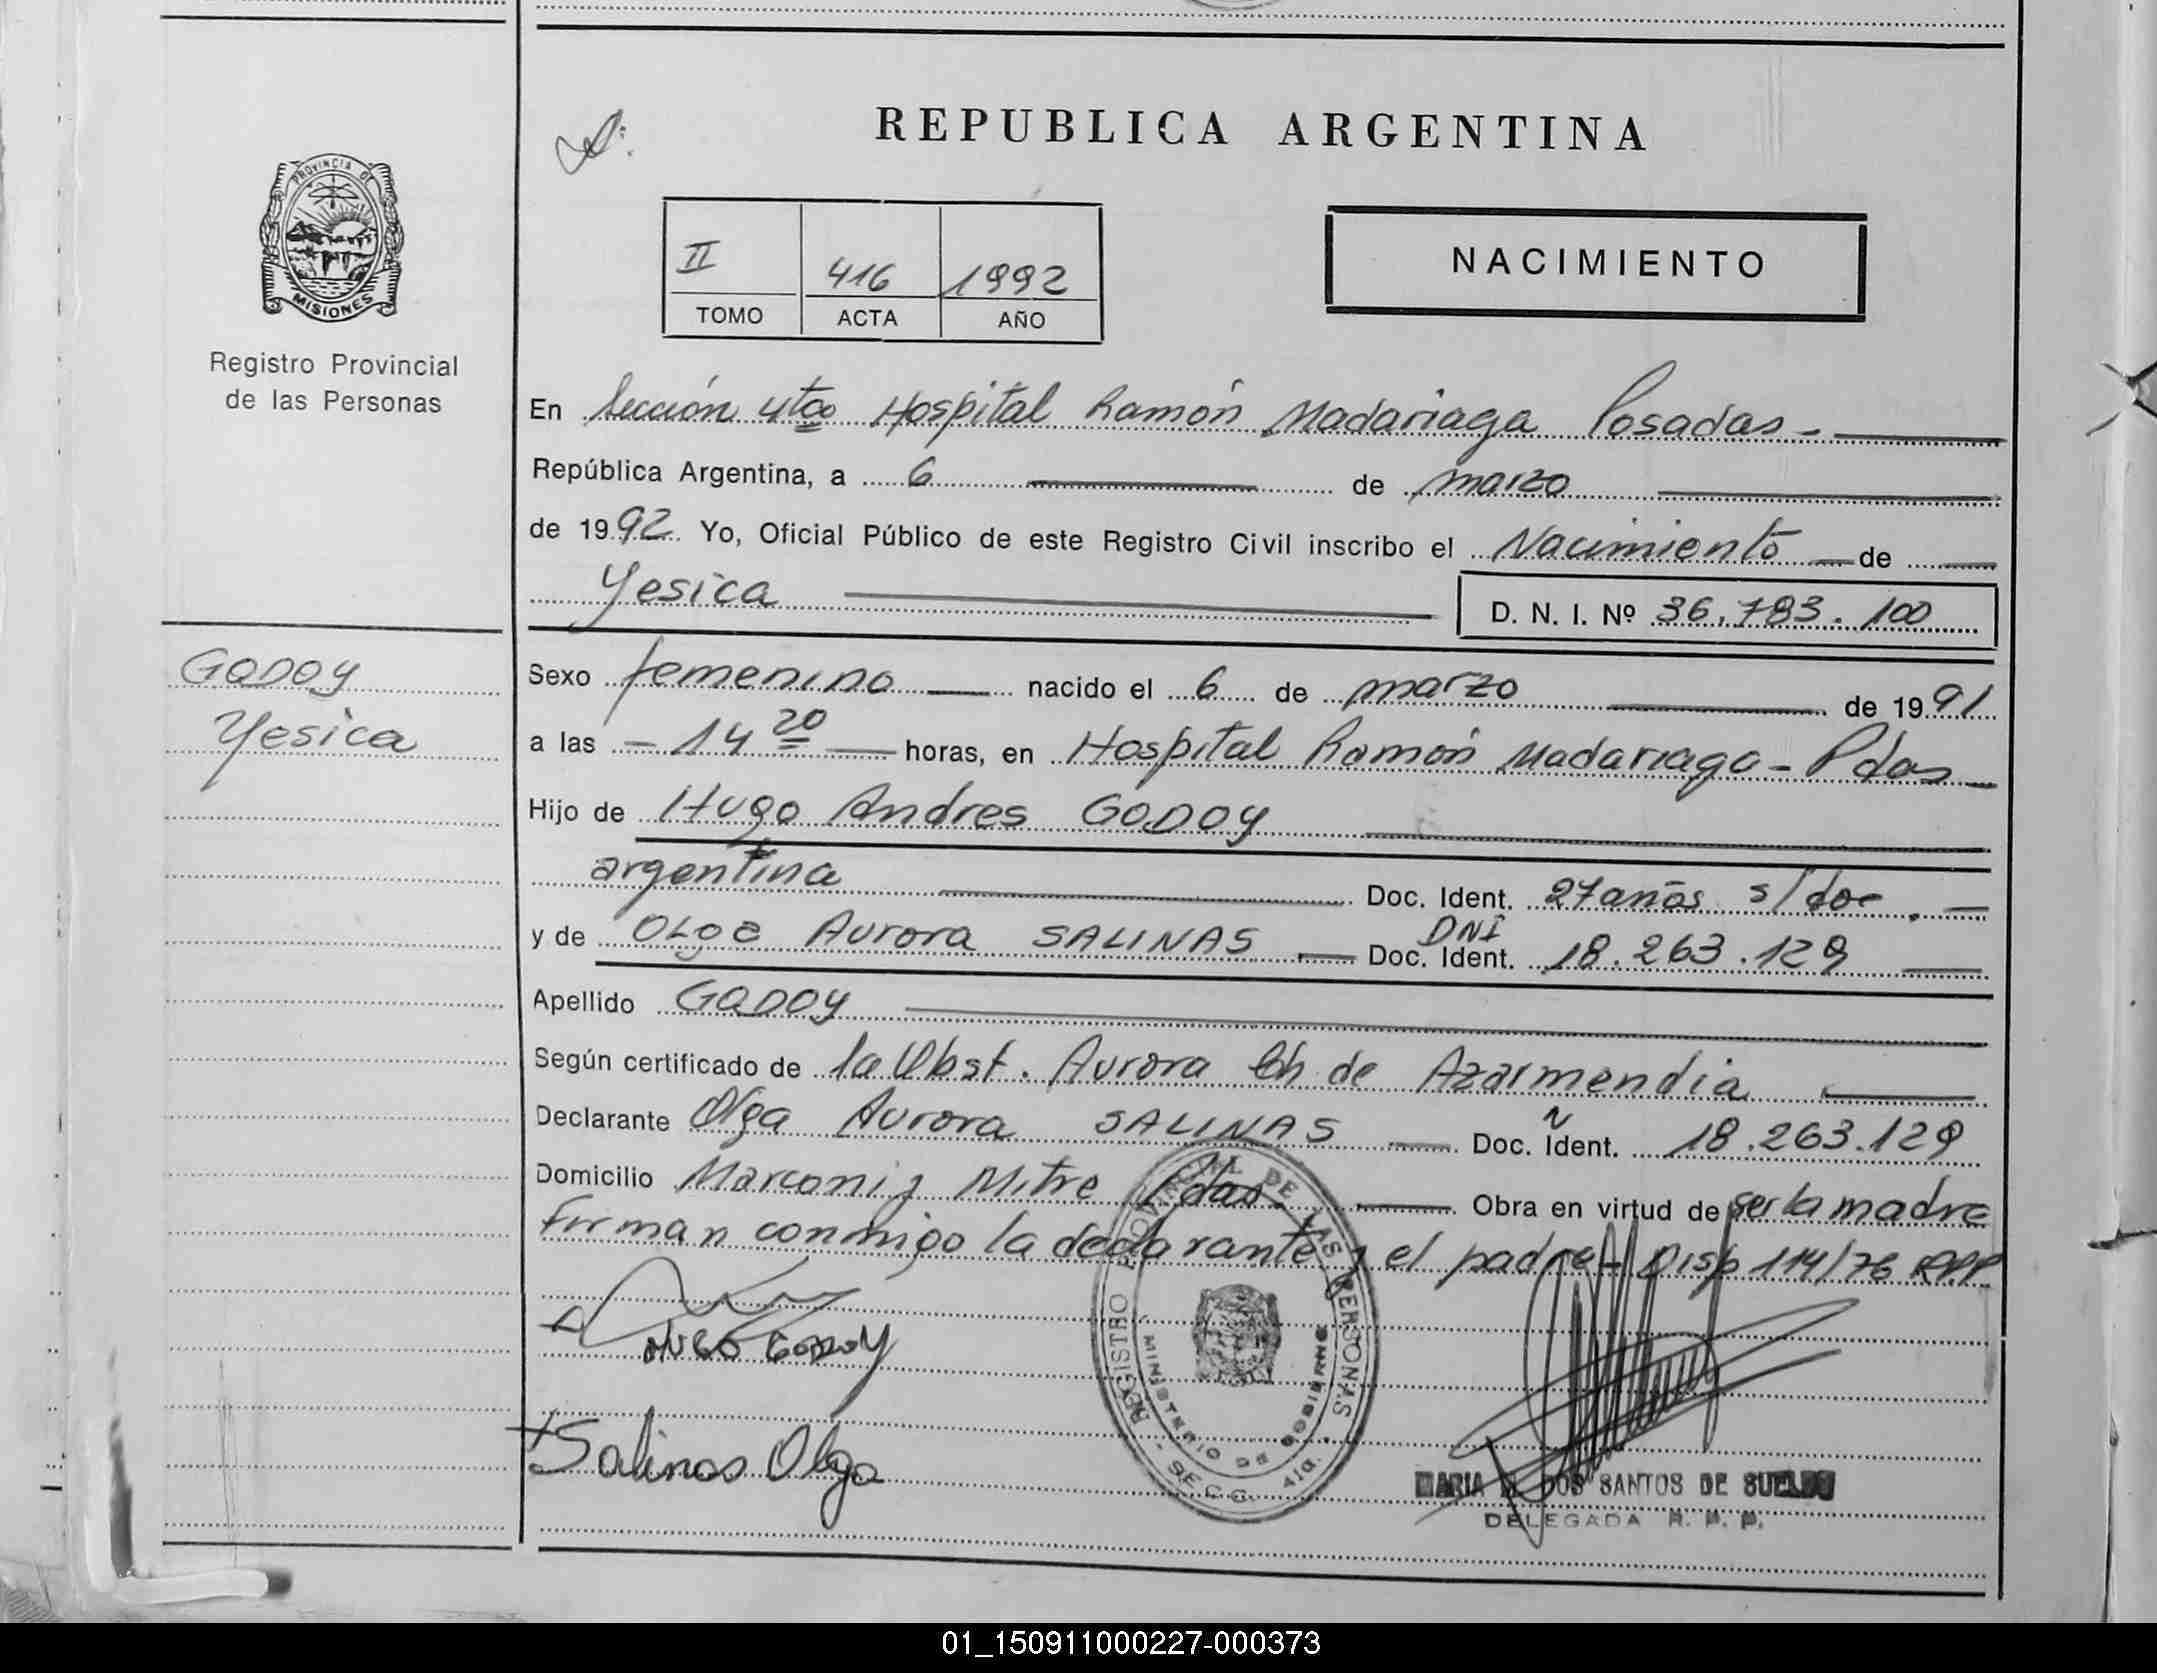 REPUBLICA ARGENTINA
PROVINCIA DE
MISIONES
Registro Provincial
de las Personas
II 416 1992
TOMO ACTA AÑO
NACIMIENTO
En Sección 4ta Hospital Ramón Madariaga Posadas -
República Argentina, a 6 de marzo
de 1992 Yo, Oficial Público de este Registro Civil inscribo el Nacimiento de
Yesica
D. N. I. Nº 36.783.100
GODOY
Yesica
Sexo femenino nacido el 6 de marzo de 1991
a las - 14 20 horas, en Hospital Ramón Madariaga - Pdas
Hijo de Hugo Andres GODOY
argentina Doc. Ident. 27 años s/doc. -
y de OLGa Aurora SALINAS DNI Doc. Ident. 18.263.129
Apellido GODOY
Según certificado de la Obst. Aurora Ch de Azarmendia
Declarante Olga Aurora SALINAS Doc. Ident. 18.263.129
Domicilio Marconi y Mitre Pdas Obra en virtud de ser la madre
firman conmigo la declarante y el padre - Disp 114/76 RPP
HUGO GODOY
Salinas Olga
REGISTRO PROVINCIAL DE LAS PERSONAS
MINISTERIO DE GOBIERNO
- SECC. 4ta. -
MARIA DOS SANTOS DE SUELDO
DELEGADA
01_150911000227-000373